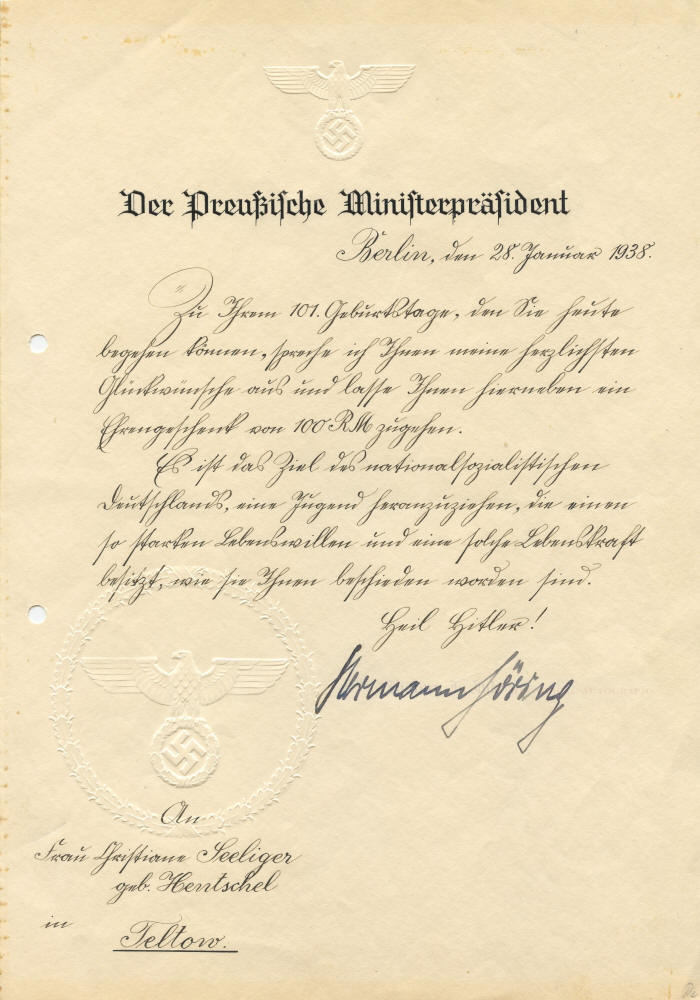 Der Preußische Ministerpräsident
Berlin, den 28. Januar 1938.
Zu Ihrem 101. Geburtstage, den Sie heute
begehen können, spreche ich Ihnen meine herzlichsten
Glückwünsche aus und lasse Ihnen hierneben ein
Ehrengeschenk von 100 RM zugehen.
Es ist das Ziel des nationalsozialistischen
Deutschlands, eine Jugend heranzuziehen, die einen
so starken Lebenswillen und eine solche Lebenskraft
besitzt, wie sie Ihnen beschieden worden sind.
Heil Hitler!
Hermann Göring
An
Frau Christiane Seeliger
geb. Hentschel
in
Teltow.